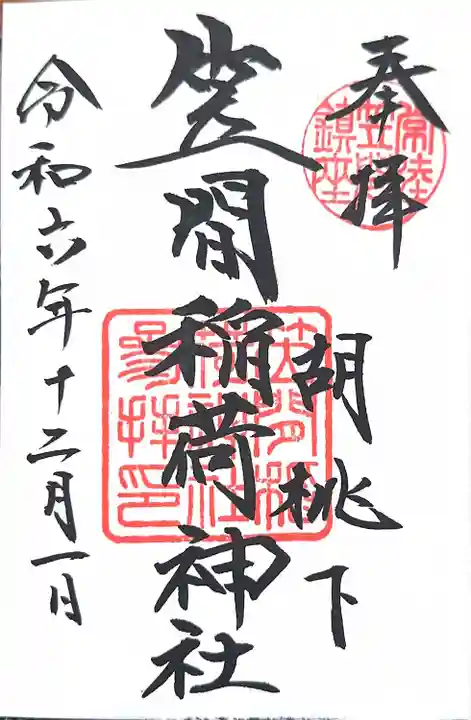 奉拝
常陸
笠間
鎮座
胡桃下
笠間稲荷神社
笠間稲
荷神社
參拝印
令和六年十二月一日